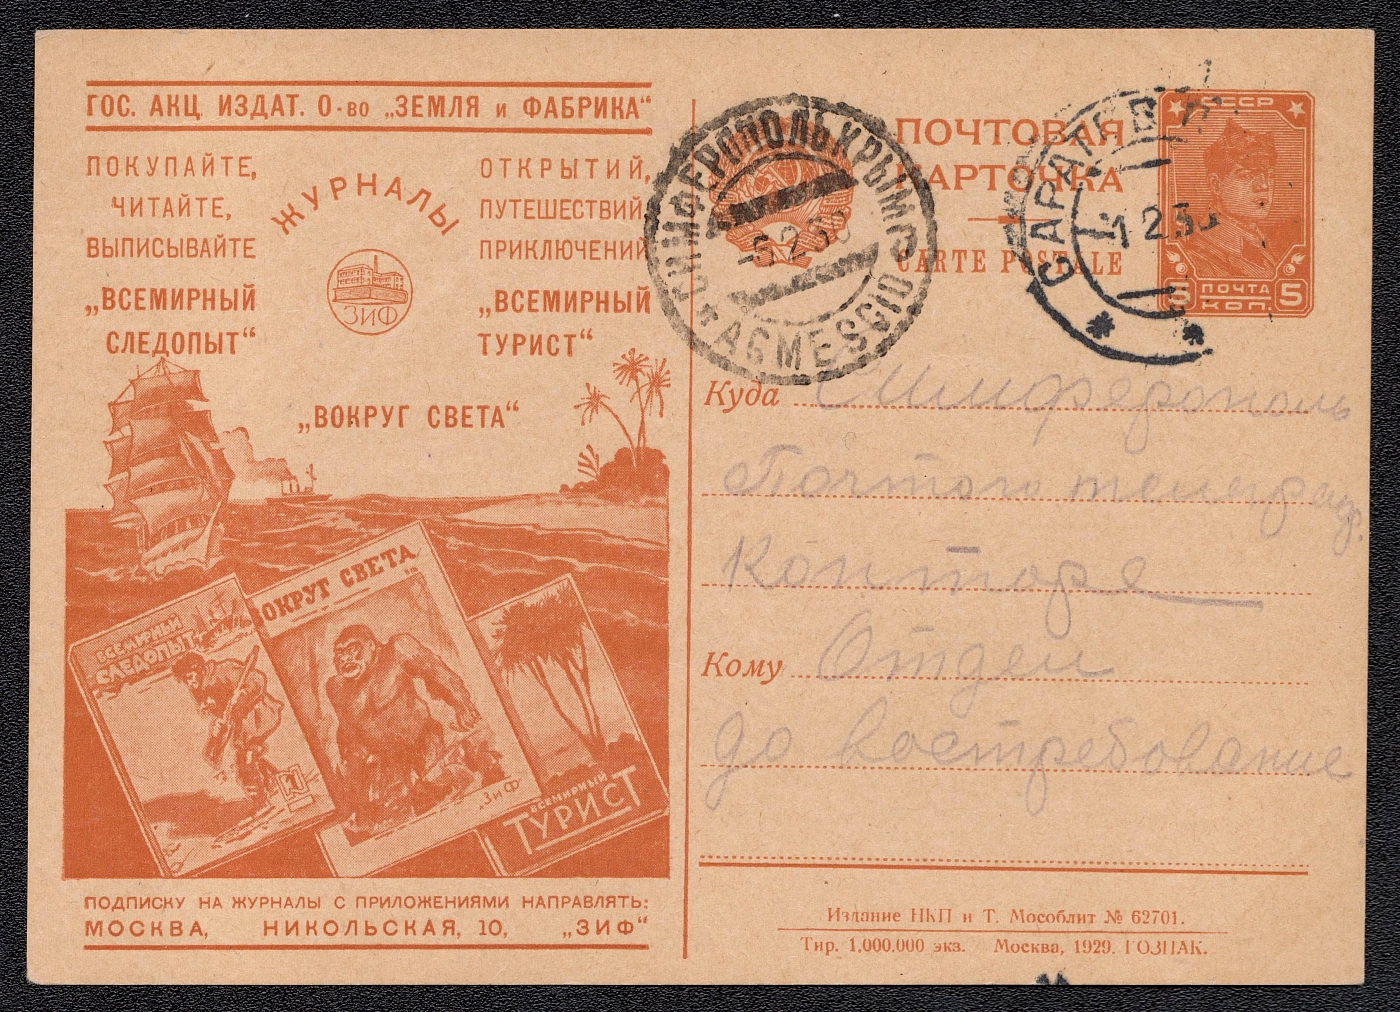 ГОС. АКЦ. ИЗДАТ. О-во „ЗЕМЛЯ и ФАБРИКА“
ПОКУПАЙТЕ,
ЧИТАЙТЕ,
ВЫПИСЫВАЙТЕ
ЖУРНАЛЫ
ОТКРЫТИЙ,
ПУТЕШЕСТВИЙ,
ПРИКЛЮЧЕНИЙ
„ВСЕМИРНЫЙ
СЛЕДОПЫТ“
ЗИФ
„ВСЕМИРНЫЙ
ТУРИСТ“
„ВОКРУГ СВЕТА“
ВСЕМИРНЫЙ
СЛЕДОПЫТ
ВОКРУГ СВЕТА
„ЗИФ“
ВСЕМИРНЫЙ
ТУРИСТ
ПОДПИСКУ НА ЖУРНАЛЫ С ПРИЛОЖЕНИЯМИ НАПРАВЛЯТЬ:
МОСКВА, НИКОЛЬСКАЯ, 10, „ЗИФ“
ПОЧТОВАЯ
КАРТОЧКА
CARTE POSTALE
СССР
5 ПОЧТА 5
КОП.
СИМФЕРОПОЛЬ КРЫМ
AGMESGID
-5 2 33
САРАТОВ
1 2 33
Куда Симферополь
Почтого телеграф.
Конторе
Кому Отдел
до востребование
Издание НКП и Т. Мособлит № 62701.
Тир. 1.000.000 экз. Москва, 1929. ГОЗНАК.